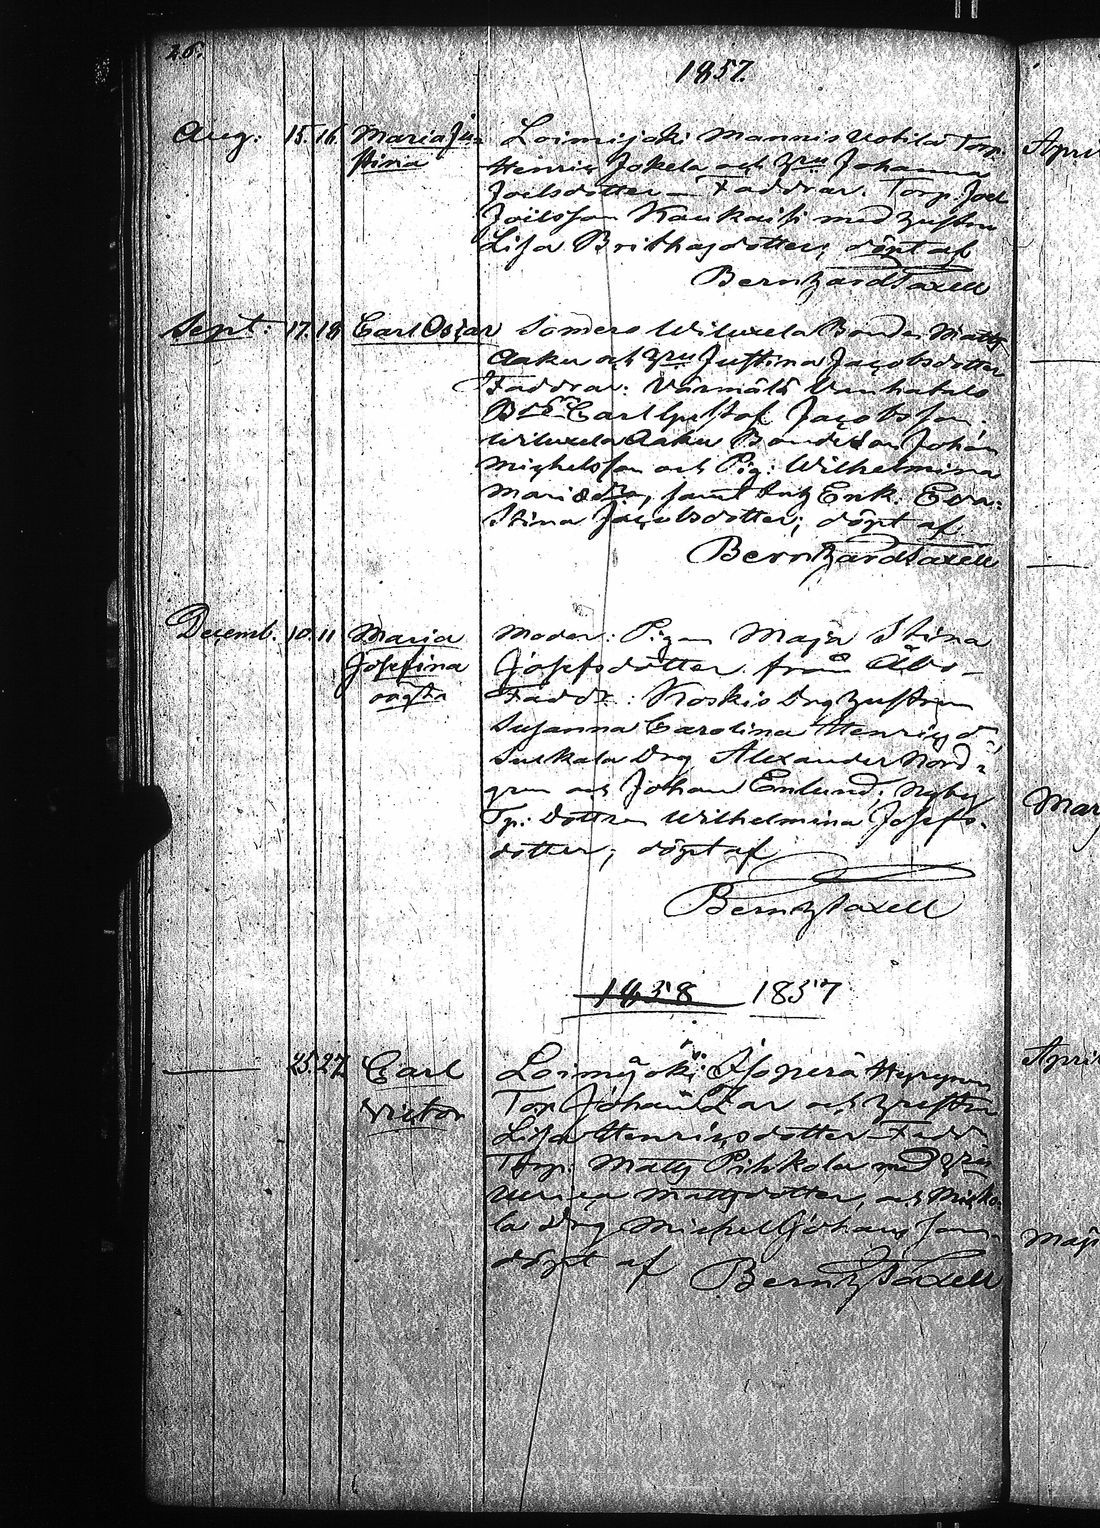 26.
1857.
Aug: 15. 16. Maria Ju- Loimijoki Mannis Uotila Torp.
stina Henric Jokela och hru Johanna
Joelsdotter — Faddrar: Torp. Joel
Joelsson Kaukaisi med hustru
Lisa Brithasdotter; döpt af
Bernhard Taxell
Sept: 17. 18 Carl Oscar Somero Wiluxela Bonden Matts
Aaku och hru Justina Jacobsdotter
Faddrar: Vanhatalo
Carl Gustaf Jacobsson;
Wiluxela Aaku Bonde Son Johan
Michelsson och Pig: Wilhelmina
samt Enk. Eva
Stina Jacobsdotter; döpt af
Bernhard Taxell
Decemb. 10. 11 Maria Moder: Pigan Maja Stina
Josefina Josefsdotter från Åbo —
oägta Faddr: Koskis Drg hustrun
Susanna Carolina Henricsd:
Drg Alexander Nord-
gren och Johan Enlund; Nyby
Tp: Dottren Wilhelmina Josefs-
dotter; döpt af
Bernh Taxell
1858 1857
25. 27 Carl Loimijoki
Victor Torp Johan och hustru
Lisa Henricsdotter Fadd:
Torp. Matts Pihkola med hru
Ulrica Mattsdotter, och
la Drg Michel Johansson
döpt af Bernh Taxell
April
Maj
April
Maj